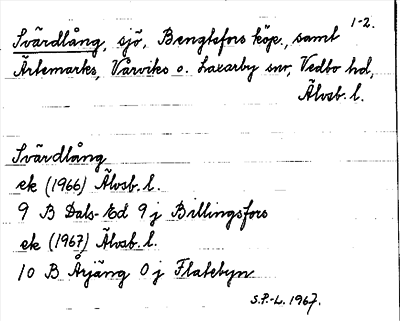 1-2.
Svärdlång, sjö, Bengtsfors köp., samt
Ärtemarks, Vårviks o. Laxarby snr, Vedbo hd,
Älvsb. l.
Svärdlång
ek (1966) Älvsb. l.
9 B Dals-Ed 9 j Billingsfors
ek (1967) Älvsb. l.
10 B Årjäng 0 j Flatebyn
S.F.-L. 1967.